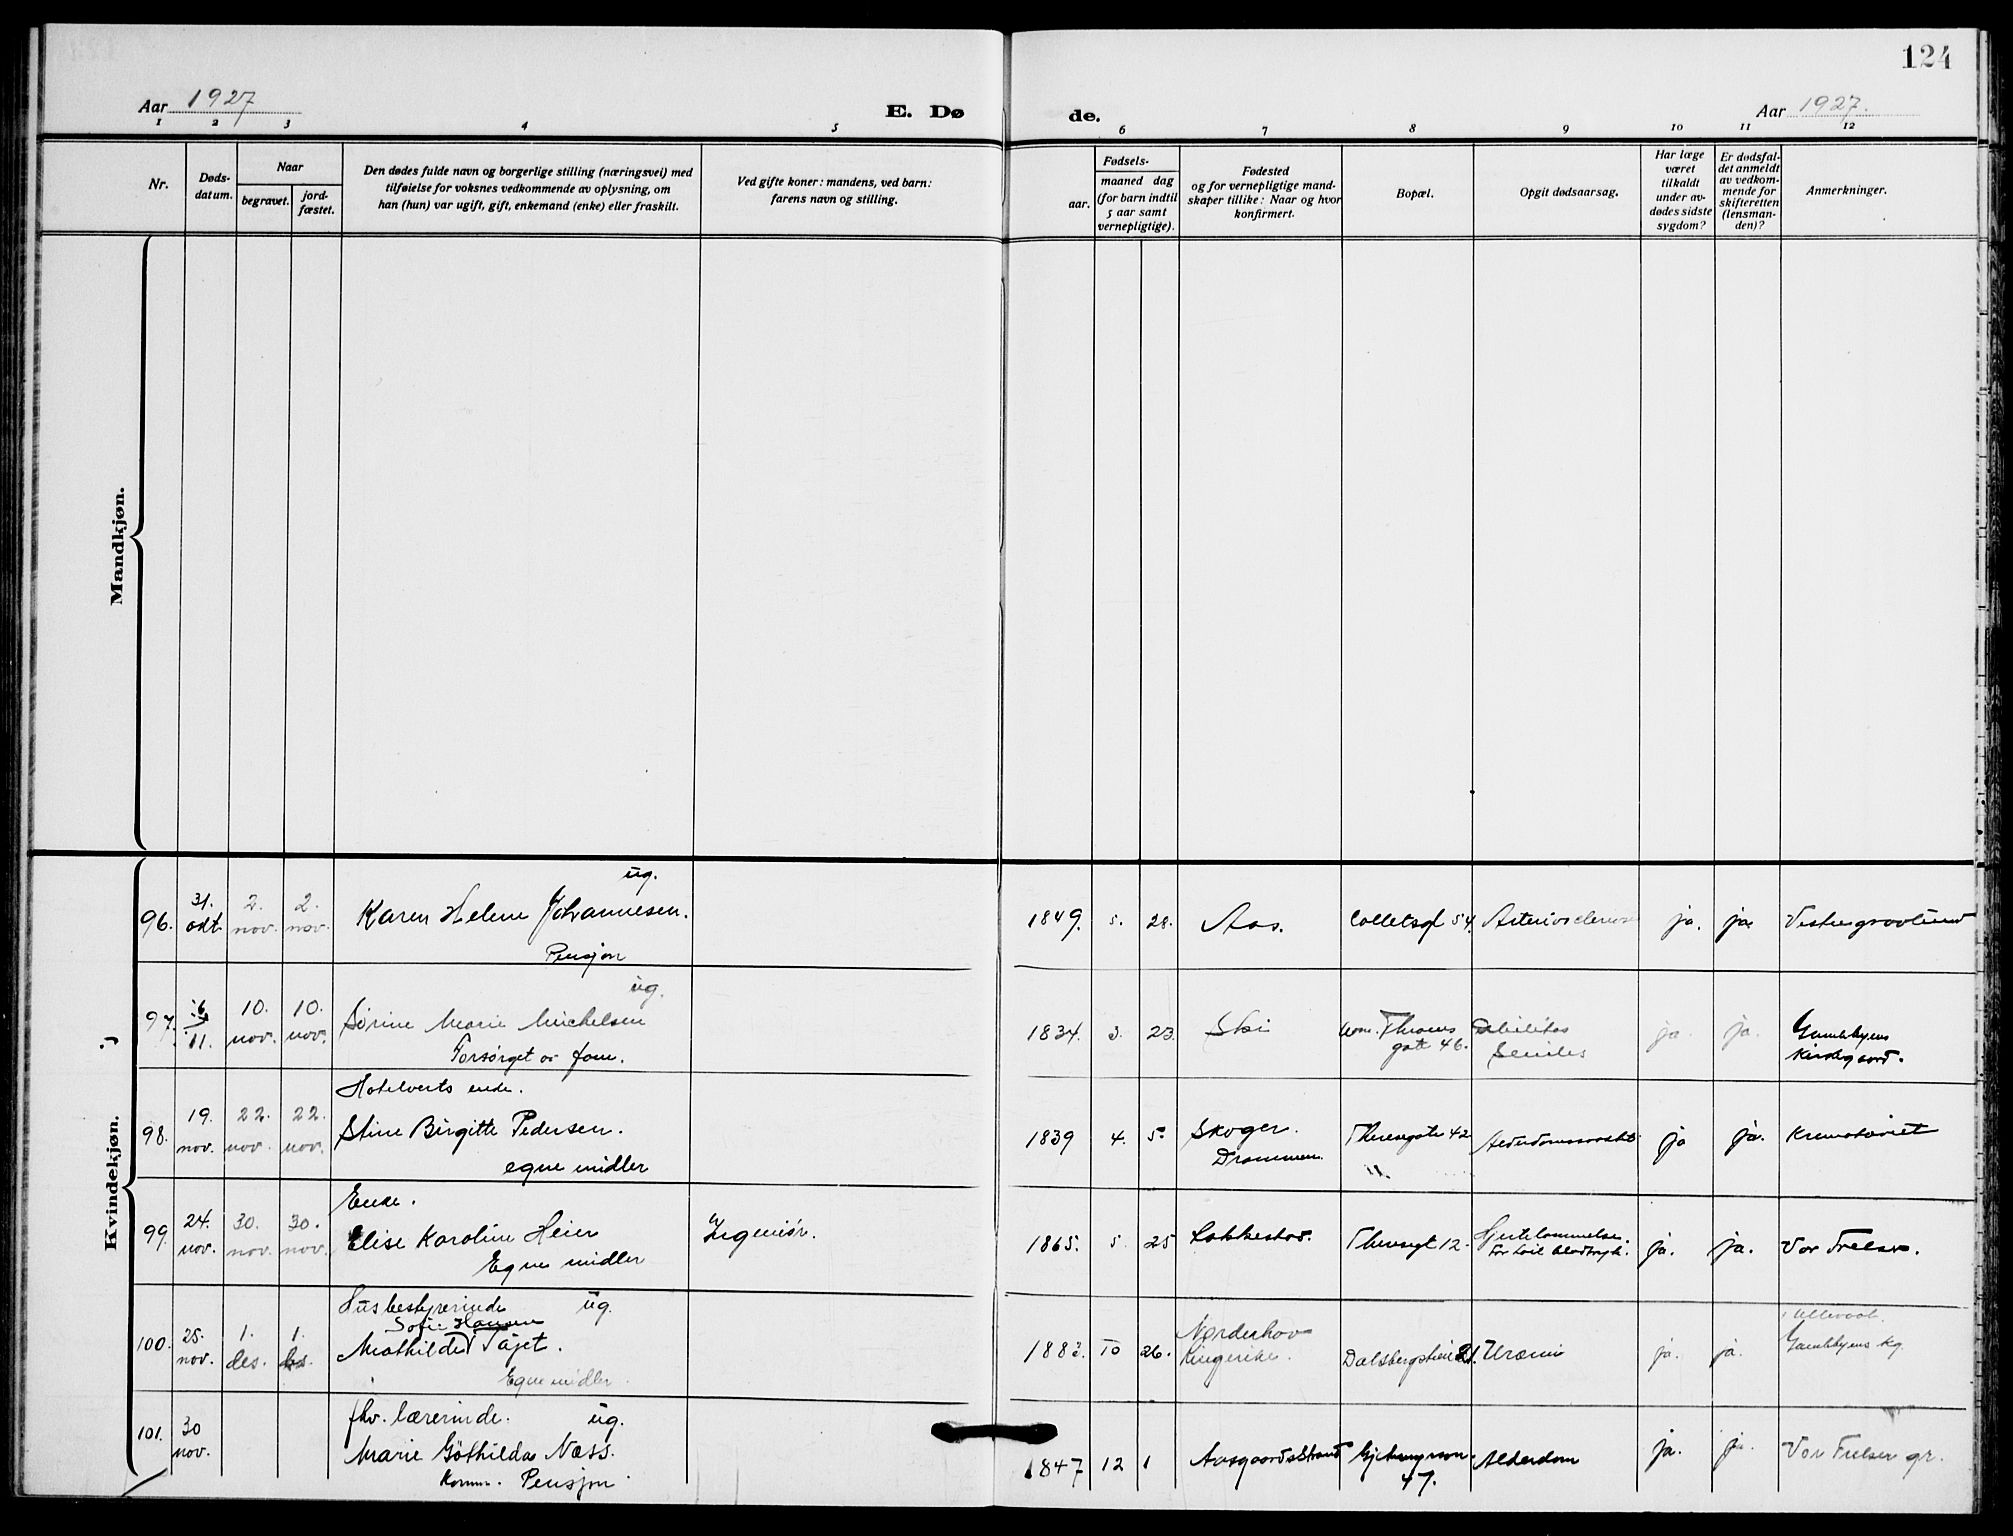 124
Aar 1927
E. Dø
de.
Aar 1927.
1 2 3 4 5 6 7 8 9 10 11 12
Nr.
Døds-
datum.
Naar
begravet.
jord-
fæstet.
Den dødes fulde navn og borgerlige stilling (næringsvei) med
tilføielse for voksnes vedkommende av oplysning, om
han (hun) var ugift, gift, enkemand (enke) eller fraskilt.
Ved gifte koner: mandens, ved barn:
farens navn og stilling.
Fødsels-
aar.
maaned dag
(for barn indtil
5 aar samt
vernepligtige).
Fødested
og for vernepligtige mand-
skaper tillike: Naar og hvor
konfirmert.
Bopæl.
Opgit dødsaarsag.
Har læge
været
tilkaldt
under av-
dødes sidste
sygdom?
Er dødsfal-
det anmeldt
av vedkom-
mende for
skifteretten
(lensman-
den)?
Anmerkninger.
Mandkjøn.
Kvindekjøn.
ug.
96. 31. 2. nov. 2. nov. Karen Helene Johannesen. 1849. 5. 28. Aas. 54. ja. ja.
Pensjon
ug.
97. 6/11. 10. nov. 10. nov. Sørine Marie Michelsen 1834. 3. 23. Ski gate 46. ja ja.
Seniles
Forsørget av fam.
Hotelverts enke.
98. 19. nov. 22. nov. 22. nov. Stine Birgitte Pedersen. 1839 4. 5. Skoger. Theresgate 42 ja ja. Krematoriet
Drammen.
egne midler
Enke.
99. 24. nov. 30. nov. 30. nov. Elise Karoline Heier Ingeniør. 1865. 5. 25 Theresgt 12. Hjertelammelse. ja. ja. Vor Frelser.
Egne midler
Husbestyrerinde ug.
Sofie Hansen
100. 25. nov. 1. des. 1. des. Mathilde Tajet. 1883. 10 26. Norderhov
Ringerike. Dalsbergstien 21. Uræmi ja. ja. Gamlebyens kg.
Egne midler
fhv. lærerinde. ug.
101. 30 nov. Marie Göthilda Næss. 1847 12 1 Aasgaardsstrand 47. Alderdom ja. ja. Vor Frelser gr.
Komm. Pensjon.